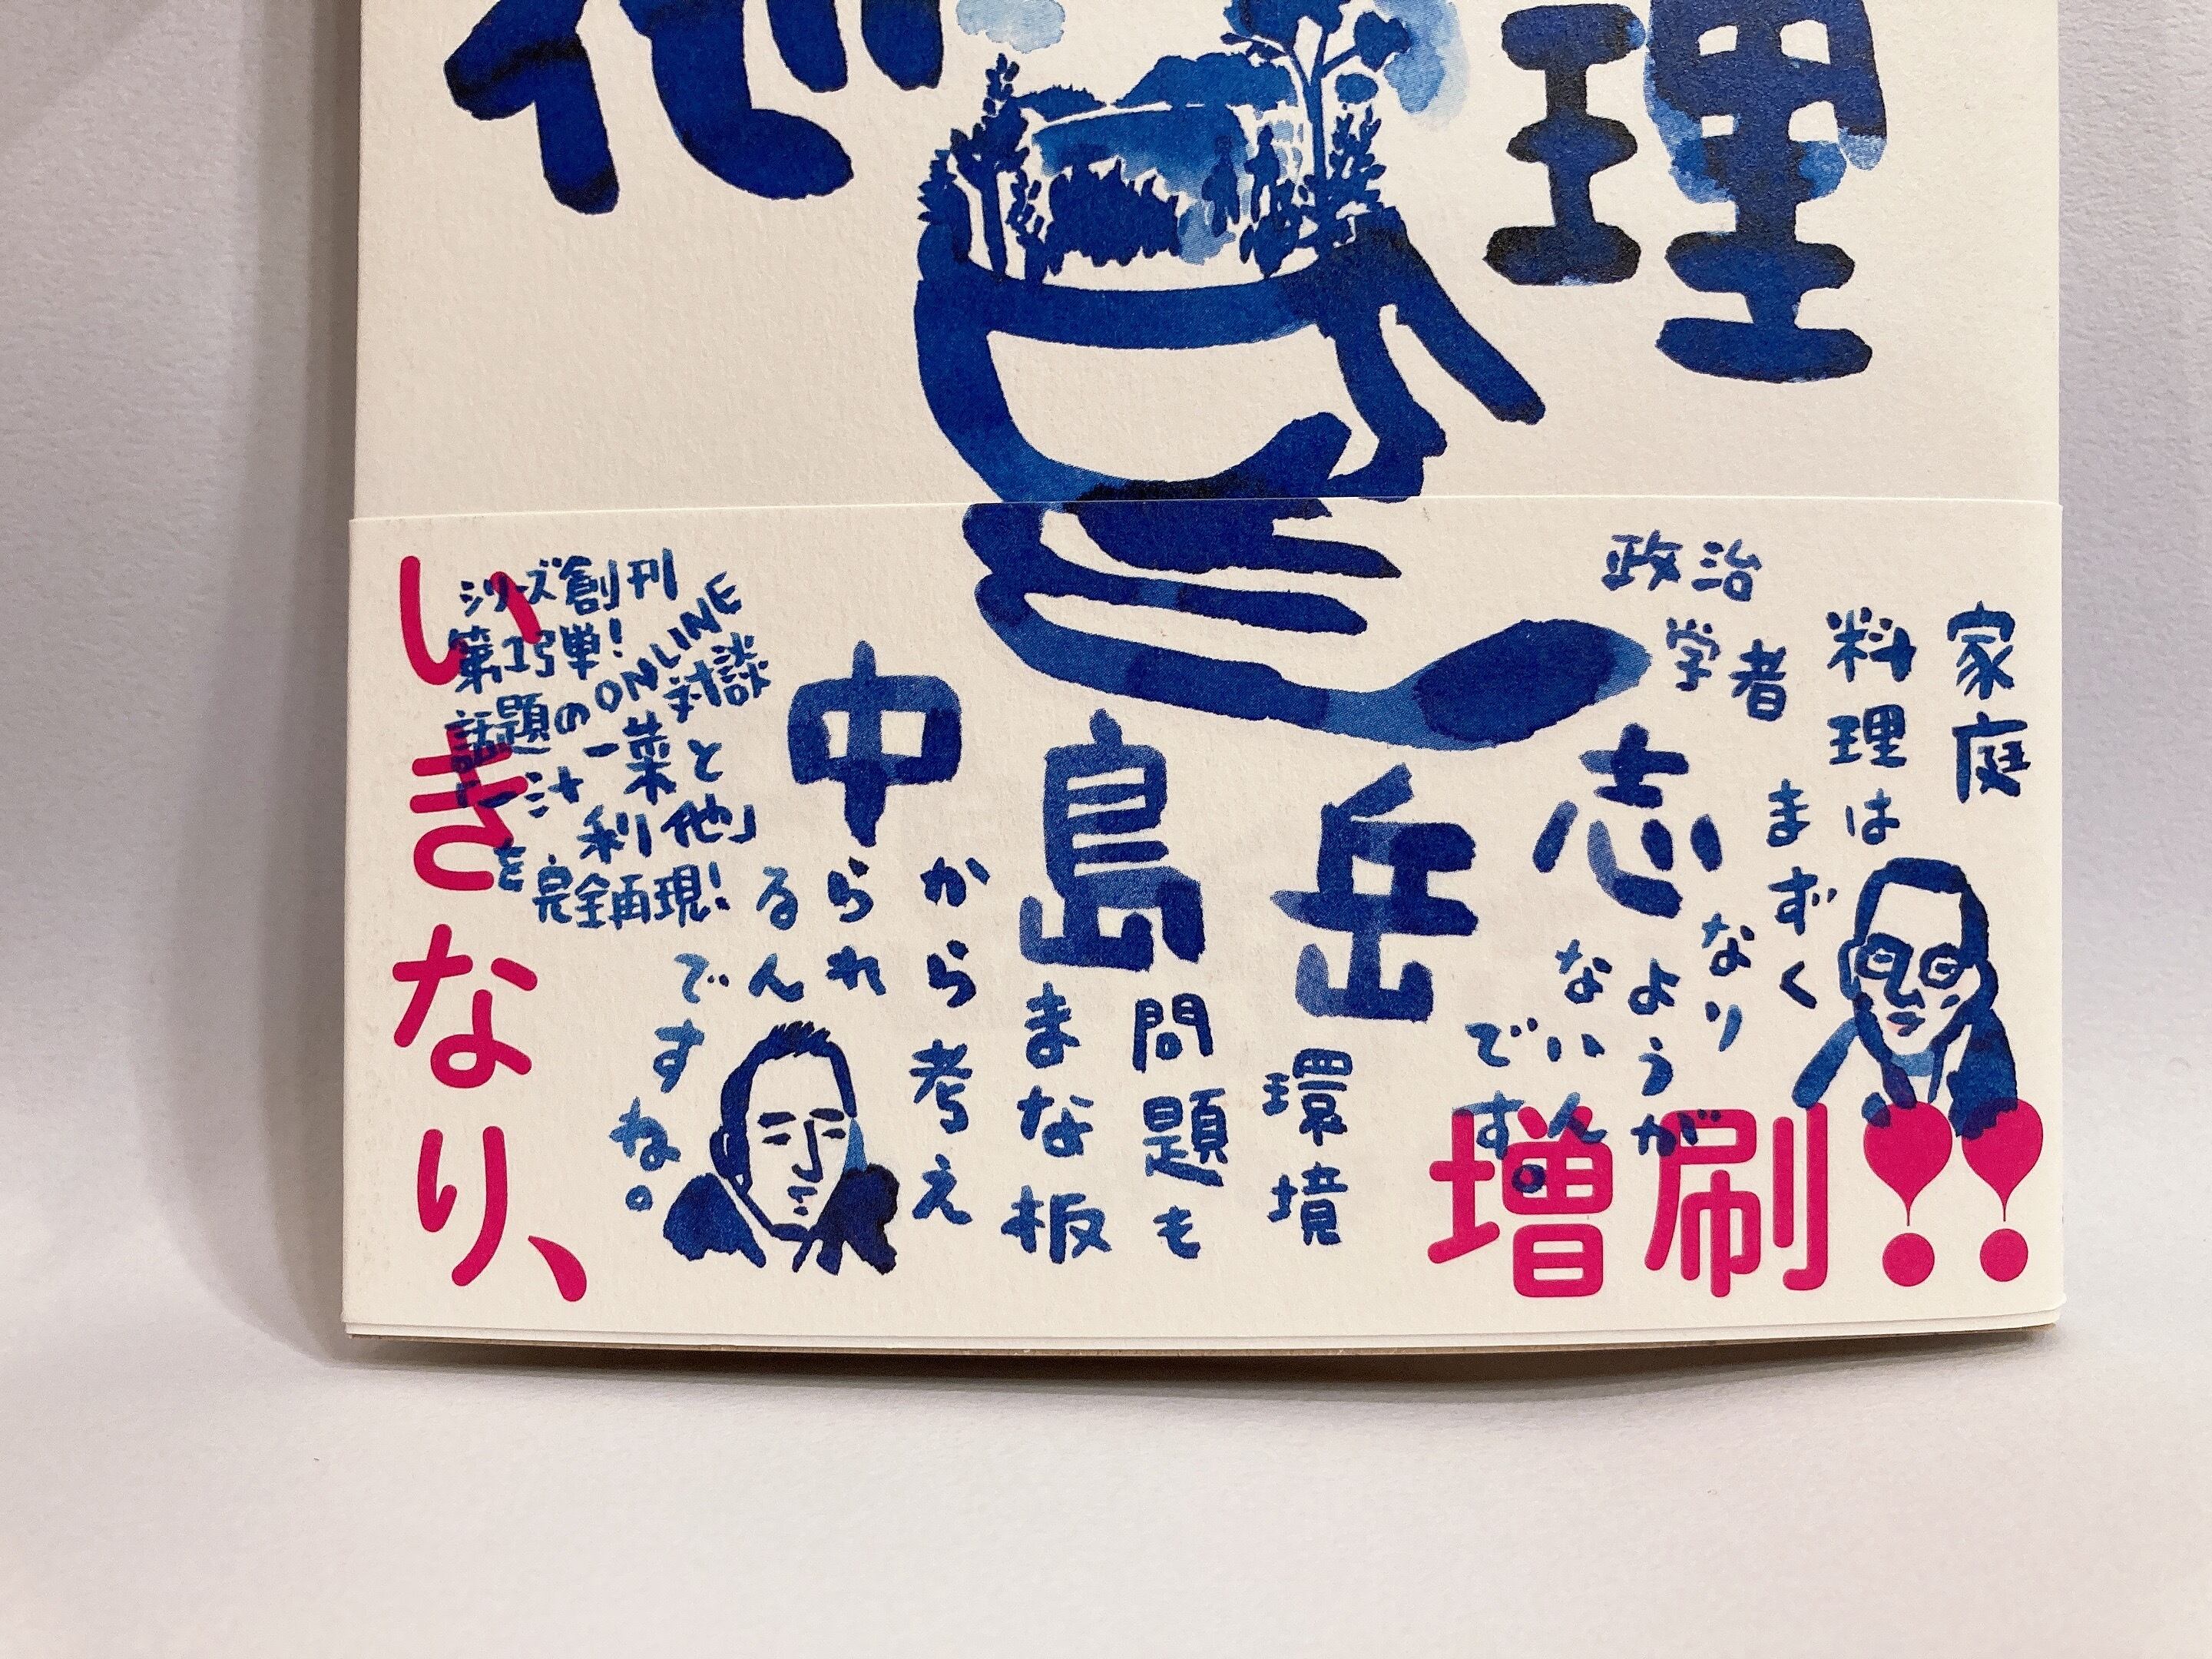 理
他
政治
学者
中島岳志
家庭
料理は
まずく
なり
ようが
ないん
です。
環境
問題も
まな板
から考え
られ
るん
です
ね。
シリーズ創刊
第1弾!
話題のONLINE対談
一汁一菜と
利他」
を完全再現!
いきなり、
増刷!!